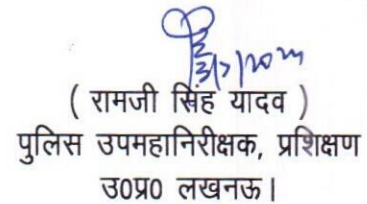 ( रामजी सिंह यादव )
पुलिस उपमहानिरीक्षक, प्रशिक्षण
उ0प्र0 लखनऊ।